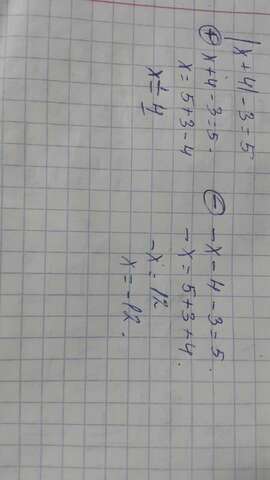 |x+4|-3=5
⊕ x+4-3=5.
x=5+3-4
x=4
⊖ -x-4-3=5.
-x=5+3+4.
-x=12
x=-12.